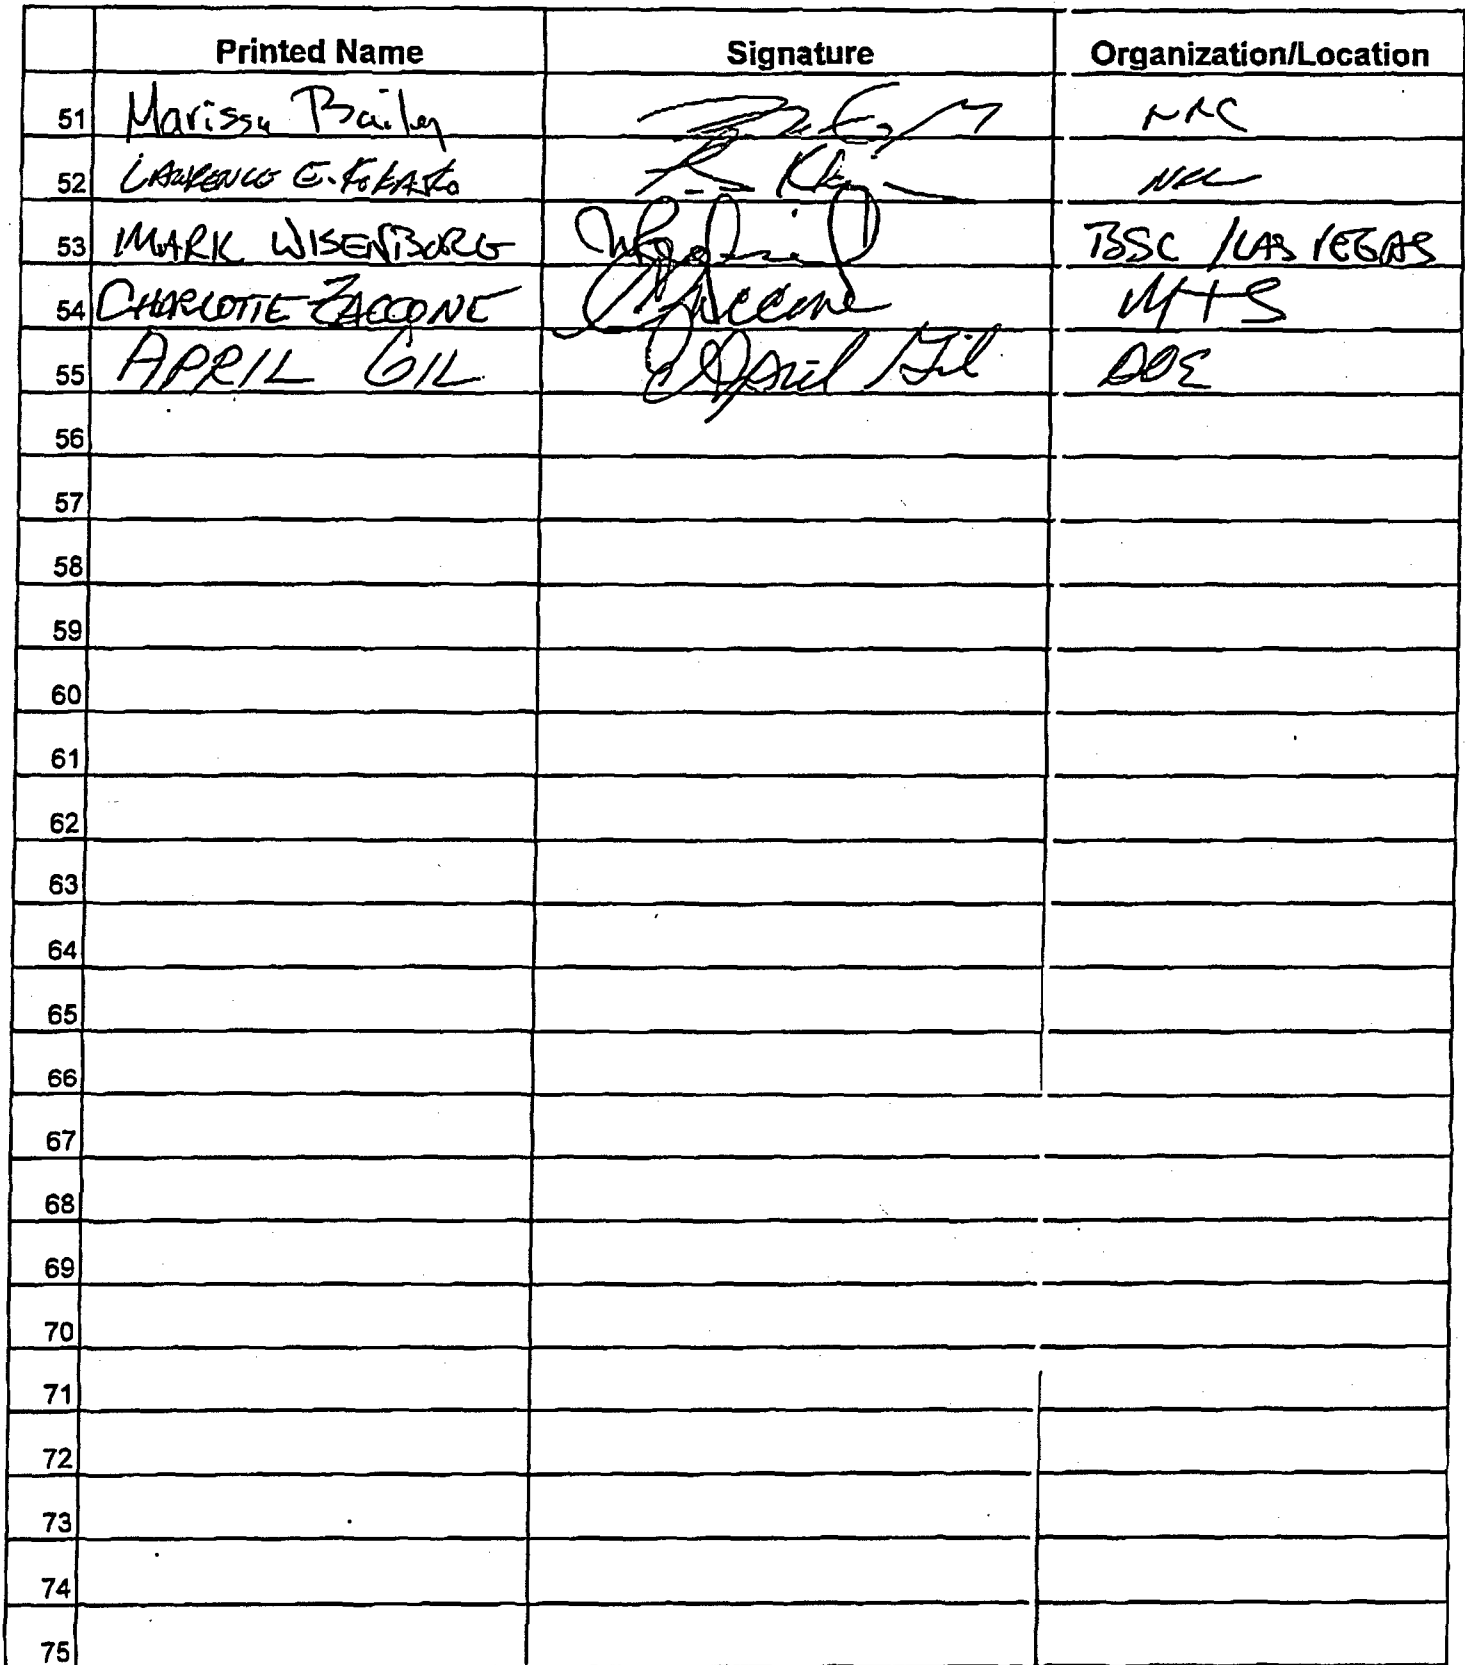 Printed Name Signature Organization/Location
51 Marissa Bailey NRC
52 LAWRENCE E. NRC
53 MARK WISENBURG BSC / LAS VEGAS
54 CHARLOTTE ZACCONE C Zaccone MTS
55 APRIL GIL April Gil DOE
56
57
58
59
60
61
62
63
64
65
66
67
68
69
70
71
72
73
74
75